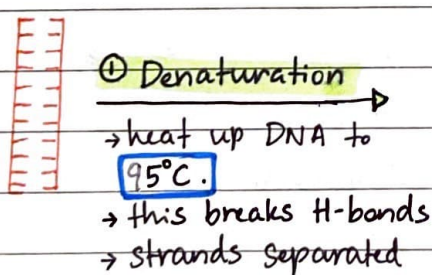 ① Denaturation
→ heat up DNA to
95°C.
→ this breaks H-bonds
→ strands separated